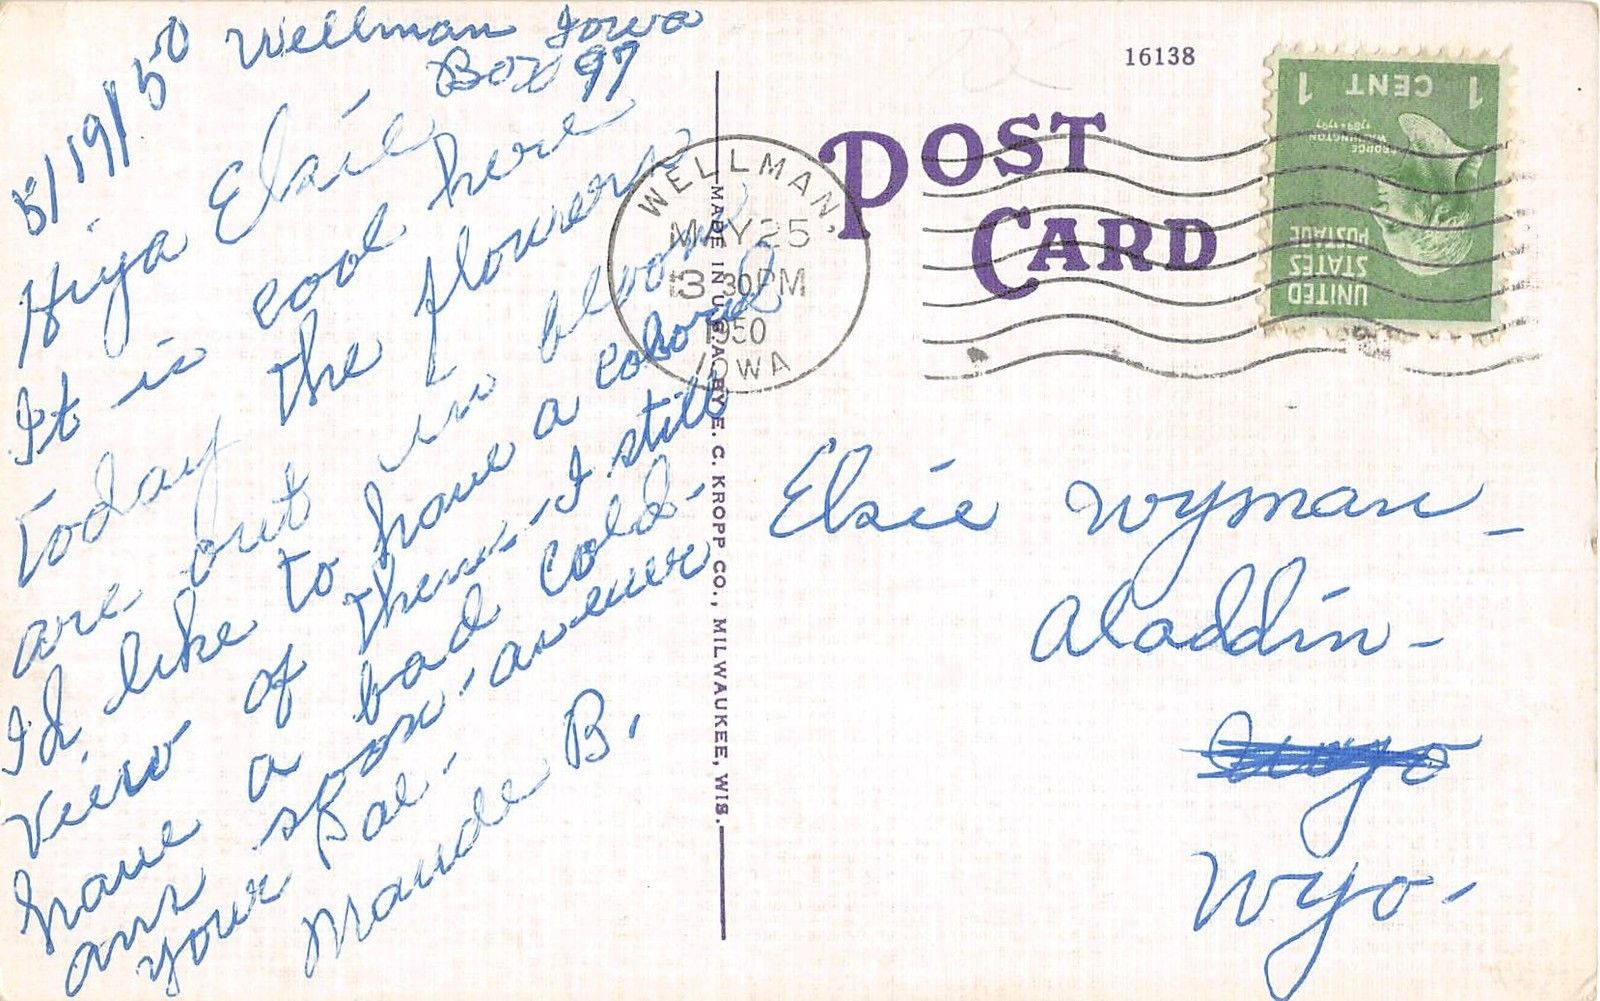 5/19/50 Wellman Iowa
Box 97
Hiya Elsie
It is cool here
today the flowers
are out in bloom
I'd like to have a colored
view of them - I still
have a bad cold -
ans soon - as ever
your Pal -
Maude B.
16138
POST
CARD
WELLMAN,
MAY 25
3 30 PM
1950
IOWA
1 CENT 1
GEORGE
WASHINGTON
1789-1797
UNITED
STATES
POSTAGE
MADE IN U. S. A. BY E. C. KROPP CO., MILWAUKEE, WIS.
Elsie Wyman -
Aladdin -
Wyo -